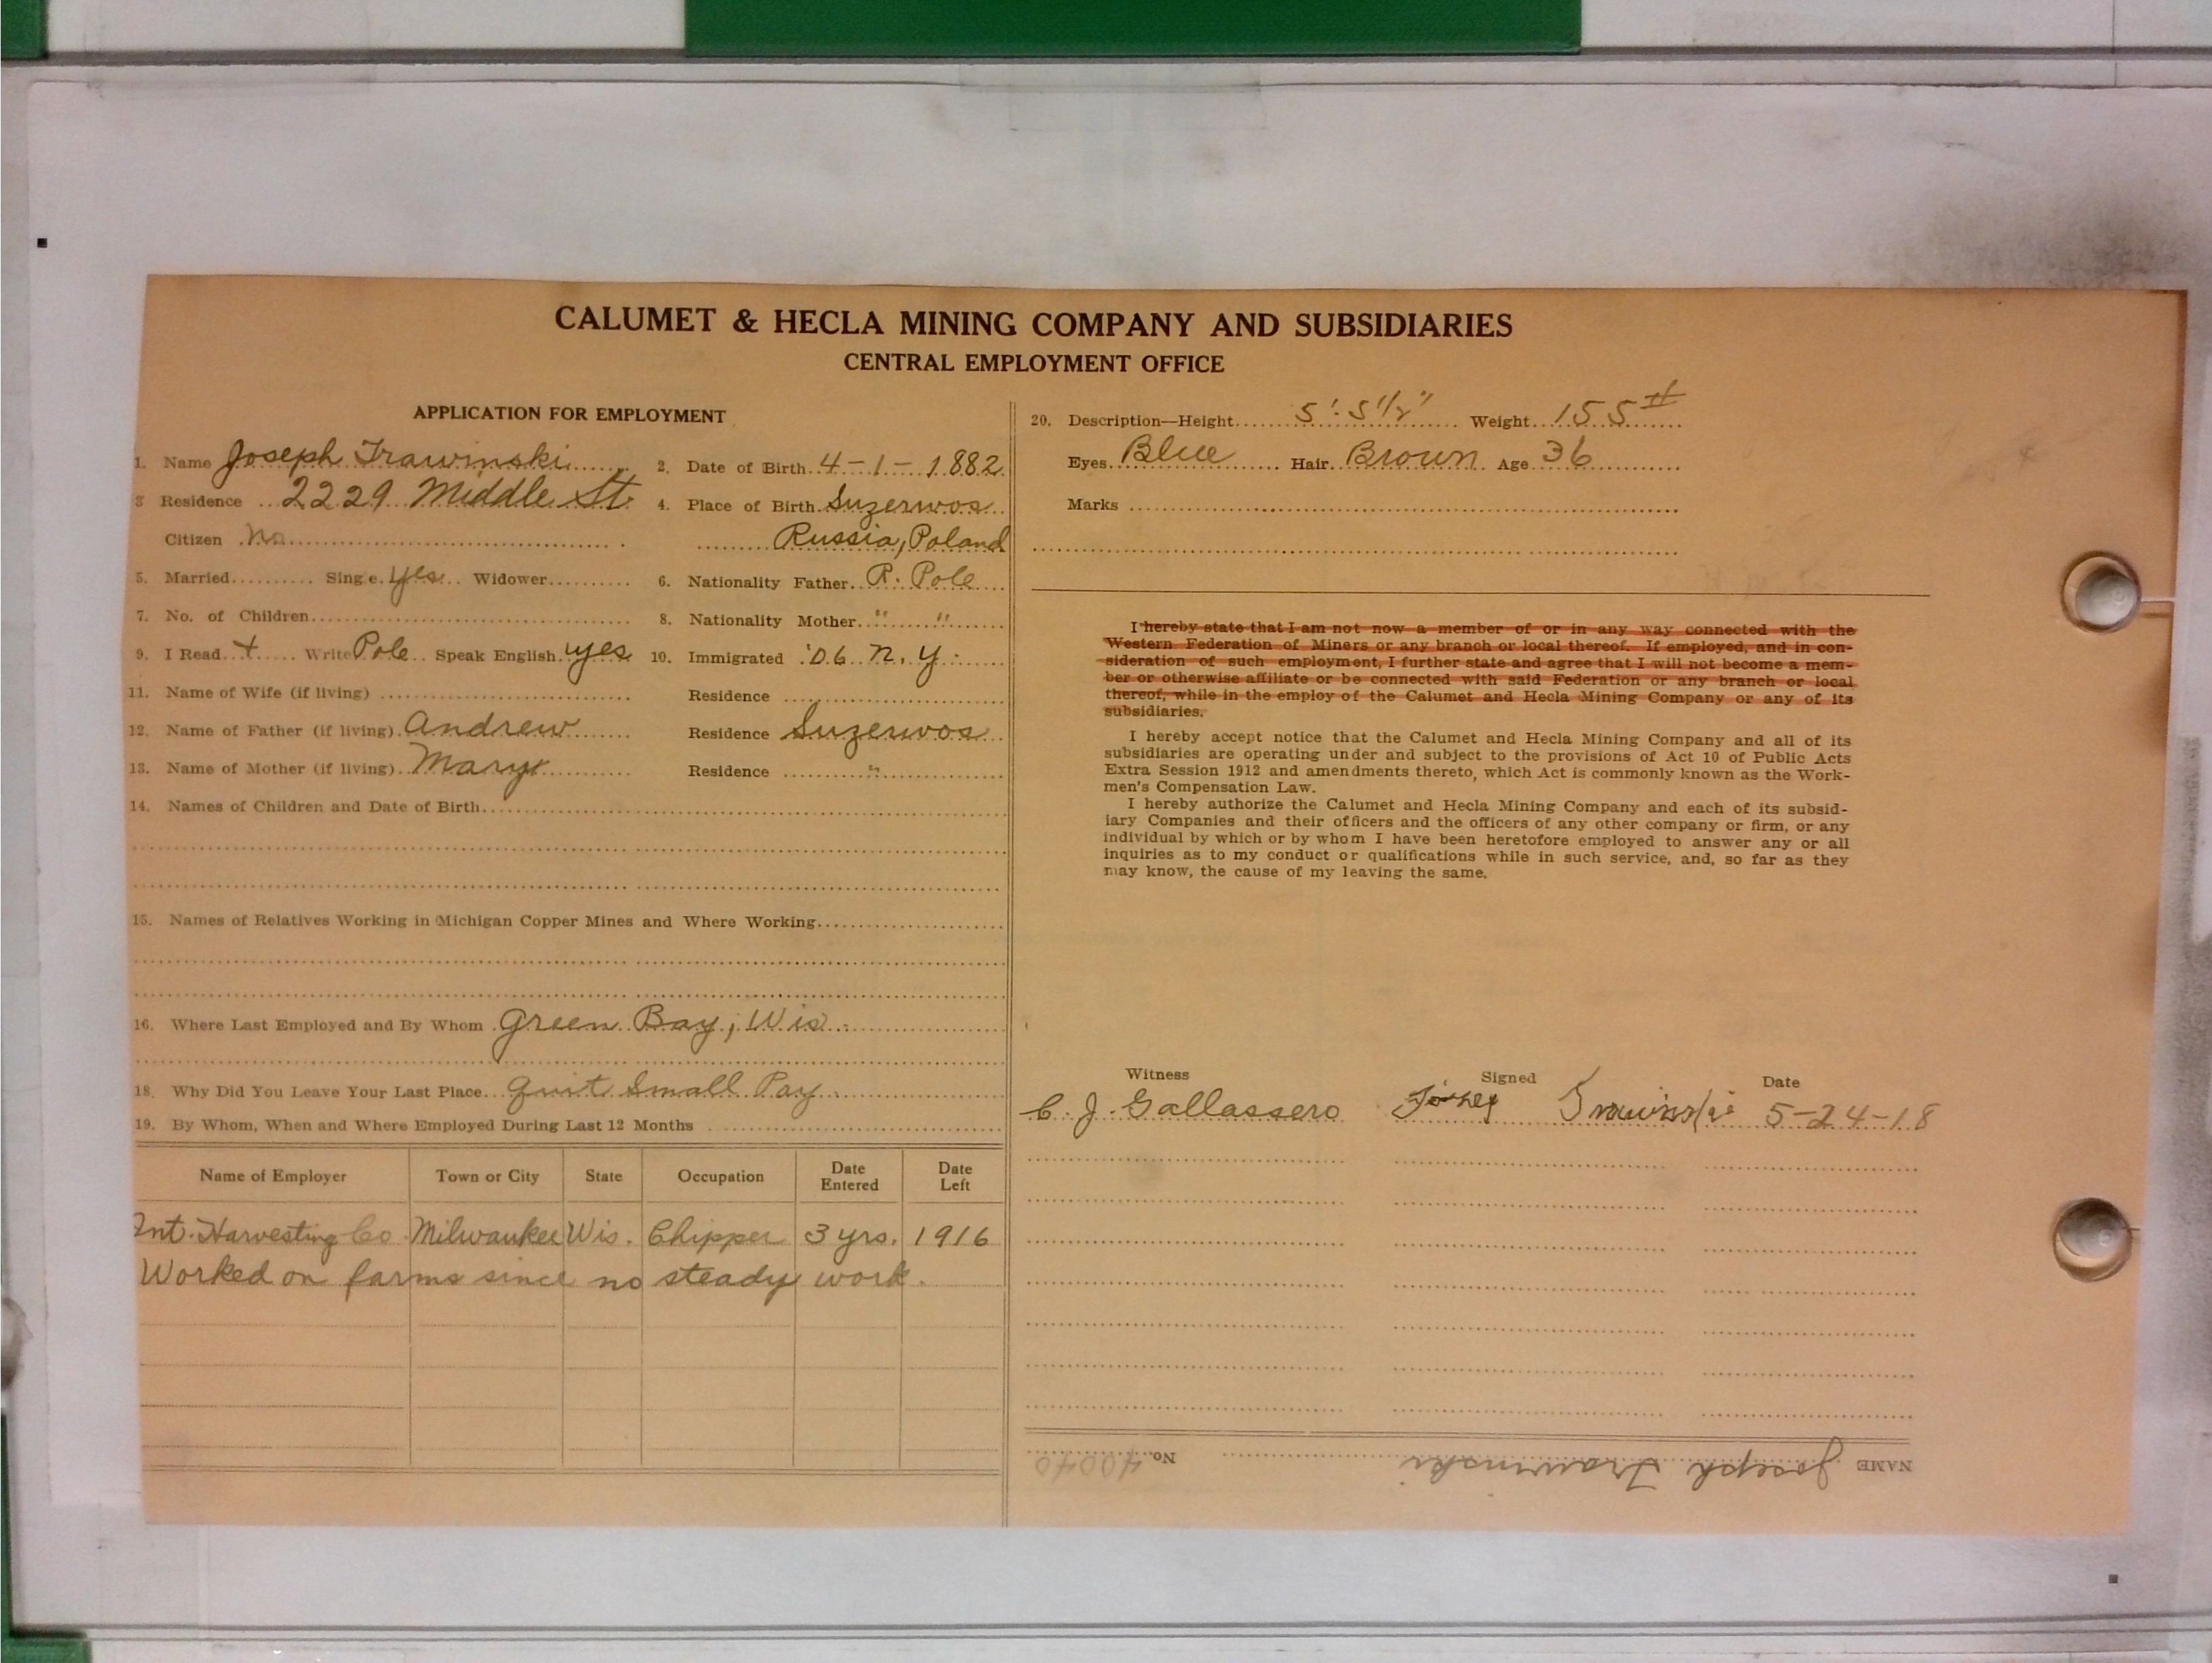 CALUMET & HECLA MINING COMPANY AND SUBSIDIARIES
CENTRAL EMPLOYMENT OFFICE
APPLICATION FOR EMPLOYMENT
1. Name Joseph Trawinski 2. Date of Birth 4-1-1882
3 Residence 2229 Middle St. 4. Place of Birth Suzerwos
Citizen No Russia, Poland
5. Married Single yes Widower 6. Nationality Father R. Pole
7. No. of Children 8. Nationality Mother " "
9. I Read + Write Pole Speak English yes 10. Immigrated '06 N.Y.
11. Name of Wife (if living) Residence
12. Name of Father (if living) Andrew Residence Suzerwos
13. Name of Mother (if living) Mary Residence "
14. Names of Children and Date of Birth
15. Names of Relatives Working in Michigan Copper Mines and Where Working
16. Where Last Employed and By Whom Green Bay, Wis.
18. Why Did You Leave Your Last Place quit Small Pay
19. By Whom, When and Where Employed During Last 12 Months
Name of Employer Town or City State Occupation Date Entered Date Left
Int. Harvesting Co. Milwaukee Wis. Chipper 3 yrs. 1916
Worked on farms since no steady work.
20. Description—Height 5'.5 1/2" Weight 155#
Eyes Blue Hair Brown Age 36
Marks
I hereby state that I am not now a member of or in any way connected with the
Western Federation of Miners or any branch or local thereof. If employed, and in con-
sideration of such employment, I further state and agree that I will not become a mem-
ber or otherwise affiliate or be connected with said Federation or any branch or local
thereof, while in the employ of the Calumet and Hecla Mining Company or any of its
subsidiaries.
I hereby accept notice that the Calumet and Hecla Mining Company and all of its
subsidiaries are operating under and subject to the provisions of Act 10 of Public Acts
Extra Session 1912 and amendments thereto, which Act is commonly known as the Work-
men's Compensation Law.
I hereby authorize the Calumet and Hecla Mining Company and each of its subsid-
iary Companies and their officers and the officers of any other company or firm, or any
individual by which or by whom I have been heretofore employed to answer any or all
inquiries as to my conduct or qualifications while in such service, and, so far as they
may know, the cause of my leaving the same.
Witness Signed Date
C. J. Gallassero Trawinski 5-24-18
NAME Joseph Trawinski No. 40040